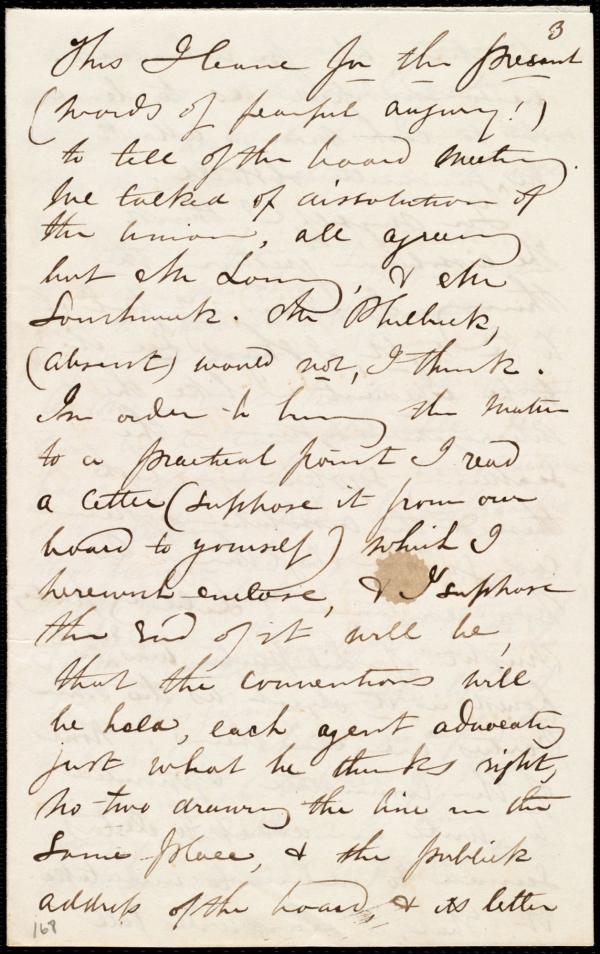 3
This I leave for the present
(words of fearful augury!)
to tell of the board meeting.
We talked of dissolution of
the union, all agreeing
but Mr Loring, & Mr
Southwick. Mr Philbrick,
(absent) would not, I think.
In order to bring the matter
to a practical point I read
a letter (suppose it from our
board to yourself) which I
herewith enclose, & I suppose
the end of it will be,
that the conventions will
be held, each agent advocating
just what he thinks right,
no two drawing the line in the
same place, & the publick
address of the board & its letter
168